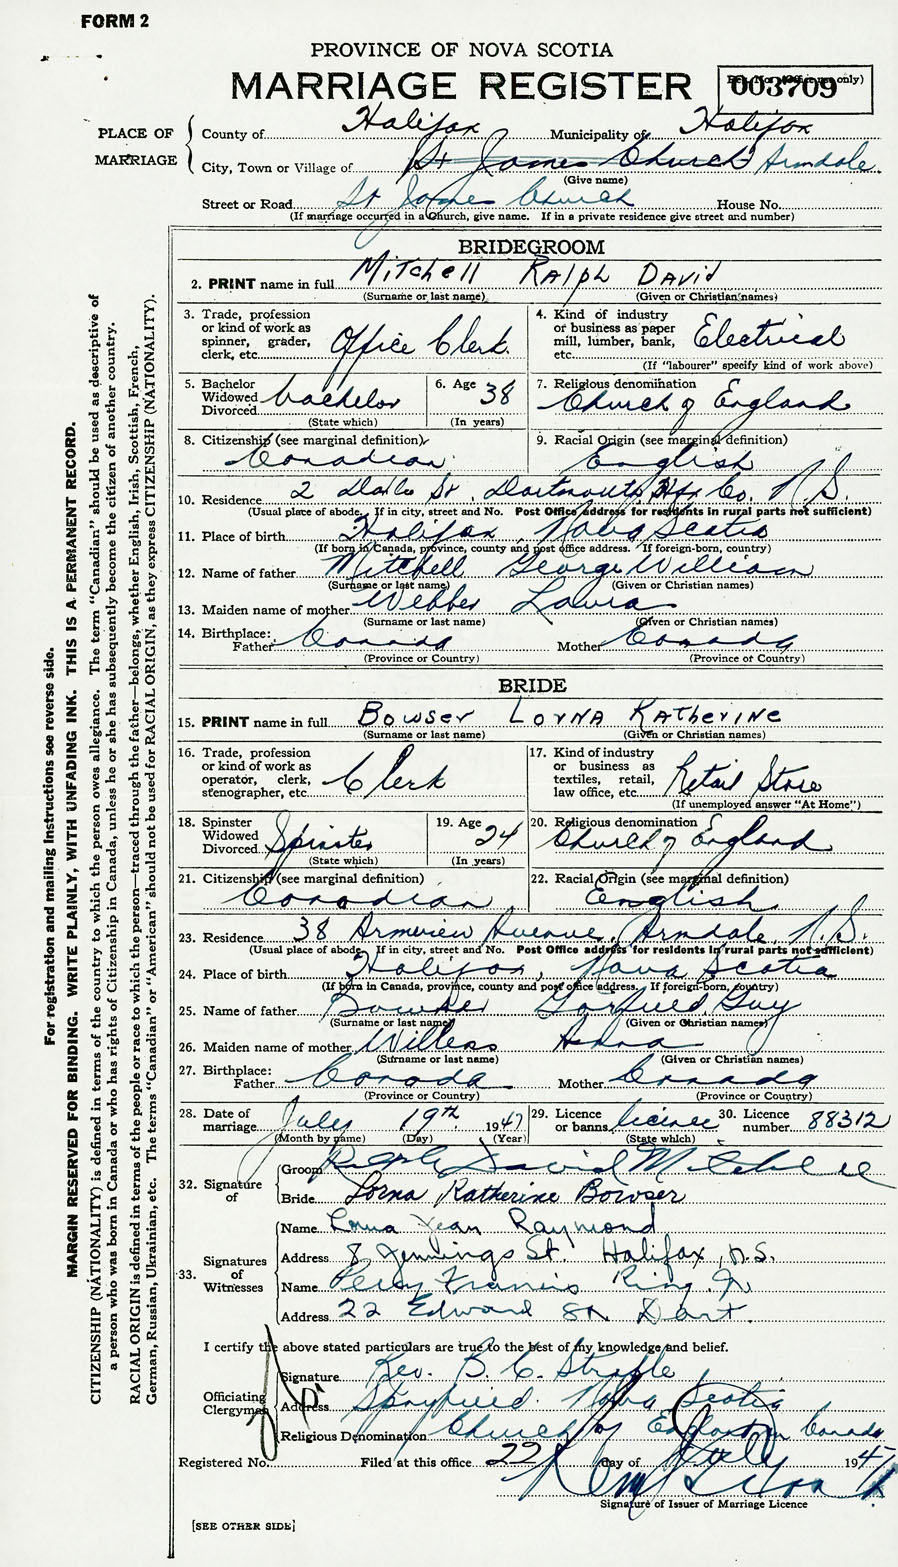 FORM 2
PROVINCE OF NOVA SCOTIA
MARRIAGE REGISTER
Reg. No. (Office use only)
003709
PLACE OF MARRIAGE
County of Halifax Municipality of Halifax
City, Town or Village of St James Church Armdale
(Give name)
Street or Road St James Church House No.
(If marriage occurred in a Church, give name. If in a private residence give street and number)
BRIDEGROOM
2. PRINT name in full Mitchell Ralph David
(Surname or last name) (Given or Christian names)
3. Trade, profession or kind of work as spinner, grader, clerk, etc. Office Clerk
4. Kind of industry or business as paper mill, lumber, bank, etc. Electrical
(If "labourer" specify kind of work above)
5. Bachelor Widowed Divorced bachelor
(State which)
6. Age 38
(In years)
7. Religious denomination Church of England
8. Citizenship (see marginal definition) Canadian
9. Racial Origin (see marginal definition) English
10. Residence 2 St, Dartmouth, Hfx Co. N.S.
(Usual place of abode. If in city, street and No. Post Office address for residents in rural parts not sufficient)
11. Place of birth Halifax Nova Scotia
(If born in Canada, province, county and post office address. If foreign-born, country)
12. Name of father Mitchell George William
(Surname or last name) (Given or Christian names)
13. Maiden name of mother Webber Laura
(Surname or last name) (Given or Christian names)
14. Birthplace: Father Canada Mother Canada
(Province or Country) (Province or Country)
BRIDE
15. PRINT name in full Bowser Lorna Katherine
(Surname or last name) (Given or Christian names)
16. Trade, profession or kind of work as operator, clerk, stenographer, etc. Clerk
17. Kind of industry or business as textiles, retail, law office, etc. Retail Store
(If unemployed answer "At Home")
18. Spinster Widowed Divorced Spinster
(State which)
19. Age 24
(In years)
20. Religious denomination Church of England
21. Citizenship (see marginal definition) Canadian
22. Racial Origin (see marginal definition) English
23. Residence 38 Armview Avenue, Armdale, N.S.
(Usual place of abode. If in city, street and No. Post Office address for residents in rural parts not sufficient)
24. Place of birth Halifax, Nova Scotia
(If born in Canada, province, county and post office address. If foreign-born, country)
25. Name of father Bowser Garfield Guy
(Surname or last name) (Given or Christian names)
26. Maiden name of mother Anna
(Surname or last name) (Given or Christian names)
27. Birthplace: Father Canada Mother Canada
(Province or Country) (Province or Country)
28. Date of marriage July 19th 1947
(Month by name) (Day) (Year)
29. Licence or banns licence
(State which)
30. Licence number 88312
32. Signature of
Groom Ralph David Mitchell
Bride Lorna Katherine Bowser
33. Signatures of Witnesses
Name Lorna Jean Raymond
Address 8 Jennings St. Halifax, N.S.
Name Percy Francis King Jr
Address 22 Edward St. Dart.
I certify the above stated particulars are true to the best of my knowledge and belief.
Officiating Clergyman
Signature Rev. B. C.
Address Spryfield Nova Scotia
Religious Denomination Church of England in Canada
Registered No. Filed at this office 22 day of July 1947
Signature of Issuer of Marriage Licence
[SEE OTHER SIDE]
For registration and mailing instructions see reverse side.
MARGIN RESERVED FOR BINDING. WRITE PLAINLY, WITH UNFADING INK. THIS IS A PERMANENT RECORD.
CITIZENSHIP (NATIONALITY) is defined in terms of the country to which the person owes allegiance. The term "Canadian" should be used as descriptive of
a person who was born in Canada or who has rights of Citizenship in Canada, unless he or she has subsequently become the citizen of another country.
RACIAL ORIGIN is defined in terms of the people or race to which the person—traced through the father—belongs, whether English, Irish, Scottish, French,
German, Russian, Ukrainian, etc. The terms "Canadian" or "American" should not be used for RACIAL ORIGIN, as they express CITIZENSHIP (NATIONALITY).